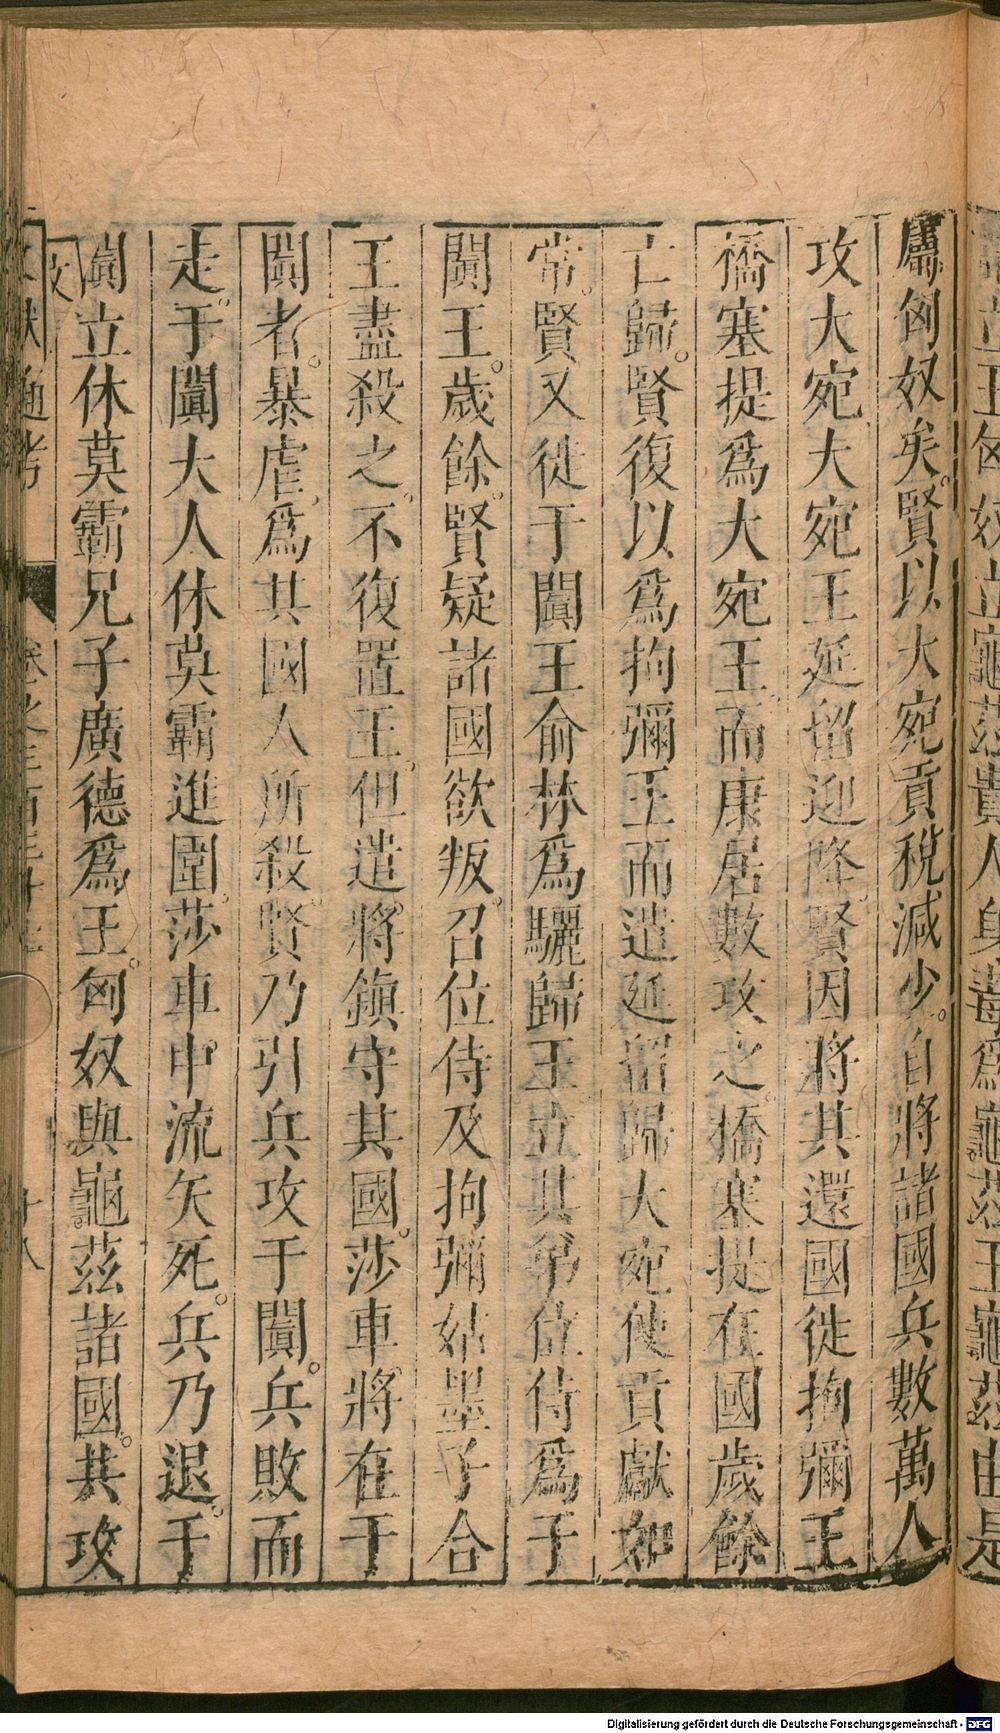 屬匈奴矣。賢以大宛貢稅減少。自將諸國兵數萬人
攻大宛大宛王延留迎降。賢因將其還國徙拘彌王
橋塞提爲大宛王。而康居數攻之。橋塞提在國歲餘
亡歸。賢復以爲拘彌王而遣延留歸大宛使貢獻如
常。賢又徙于闐王俞林爲驪歸王立其弟位侍爲于
闐王。歲餘。賢疑諸國欲叛。召位侍及拘彌姑墨子合
王盡殺之。不復置王。但遣將鎭守其國。莎車將在于
闐者。暴虐。爲其國人所殺。賢乃引兵攻于闐。兵敗而
走。于闐大人休莫霸進圍。莎車。中流矢死。兵乃退。于
闐立休莫霸兄子廣德爲王。匈奴與龜茲諸國。共攻
通考
十八
王匈奴立龜茲貴人身毒爲龜茲王龜茲由是
Digitalisierung gefördert durch die Deutsche Forschungsgemeinschaft - DFG